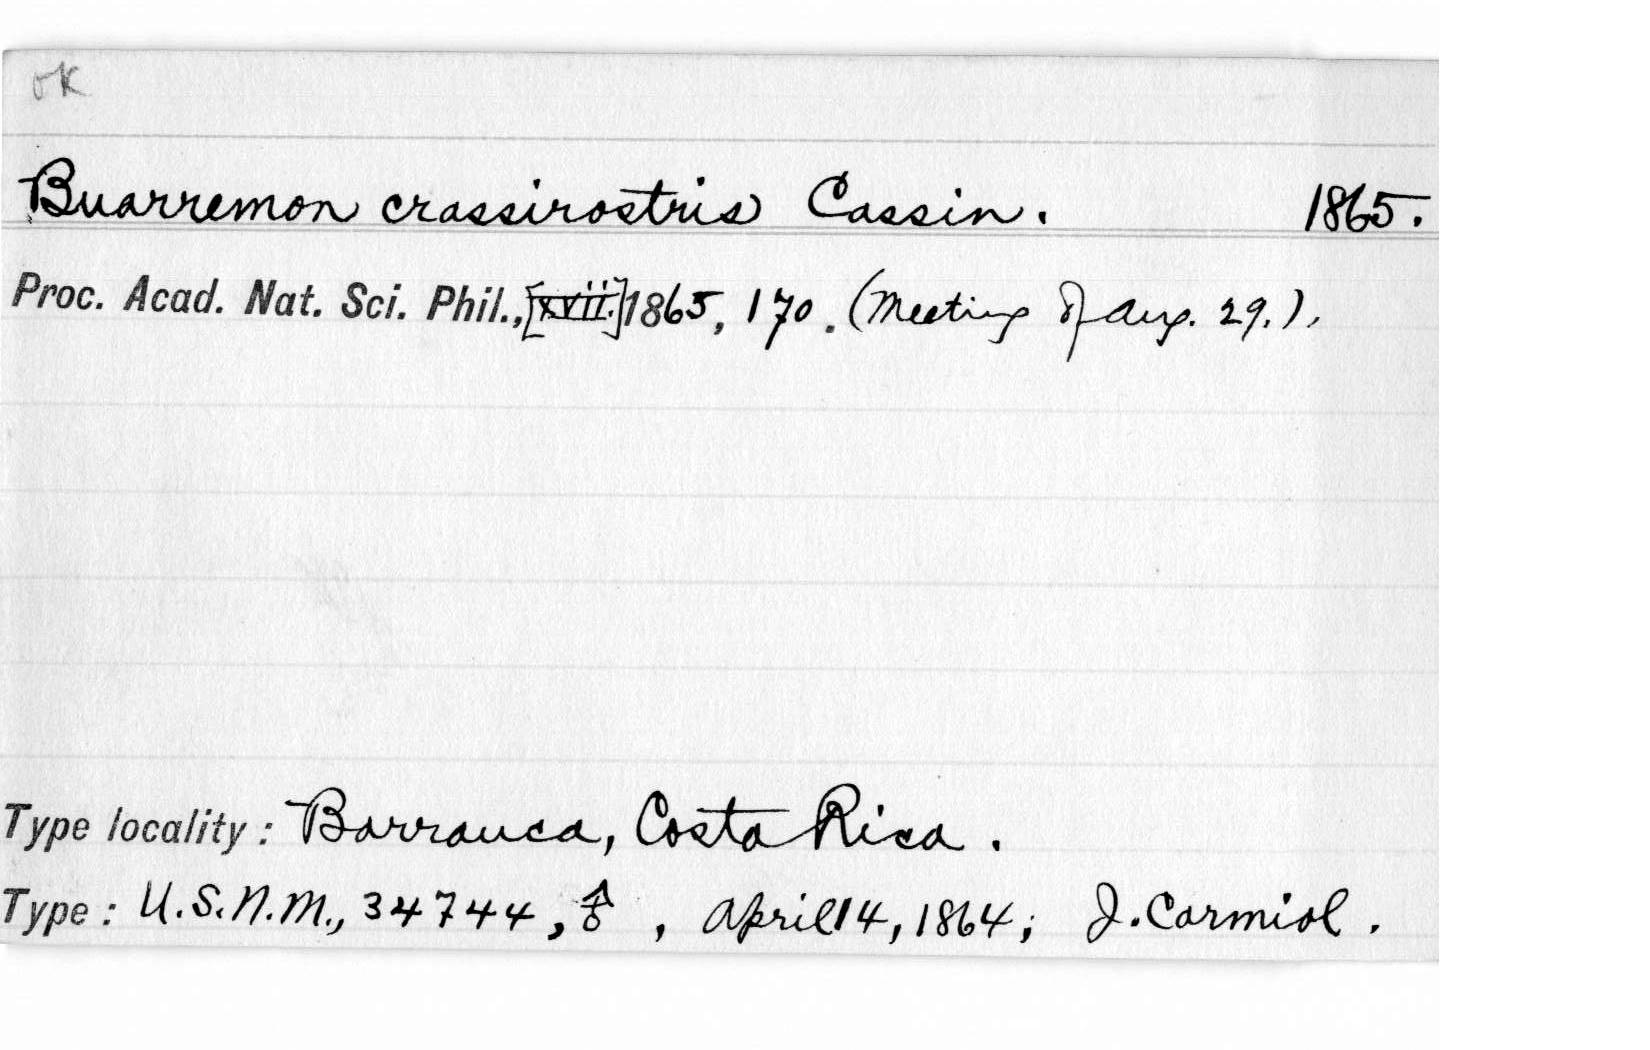 ok
Buarremon crassirostris Cassin. 1865.
Proc. Acad. Nat. Sci. Phil., [xvii.] 1865, 170. (Meeting of Aug. 29.).
Type locality: Barranca, Costa Rica.
Type: U.S.N.M., 34744, ♂, April 14, 1864; J. Carmiol.